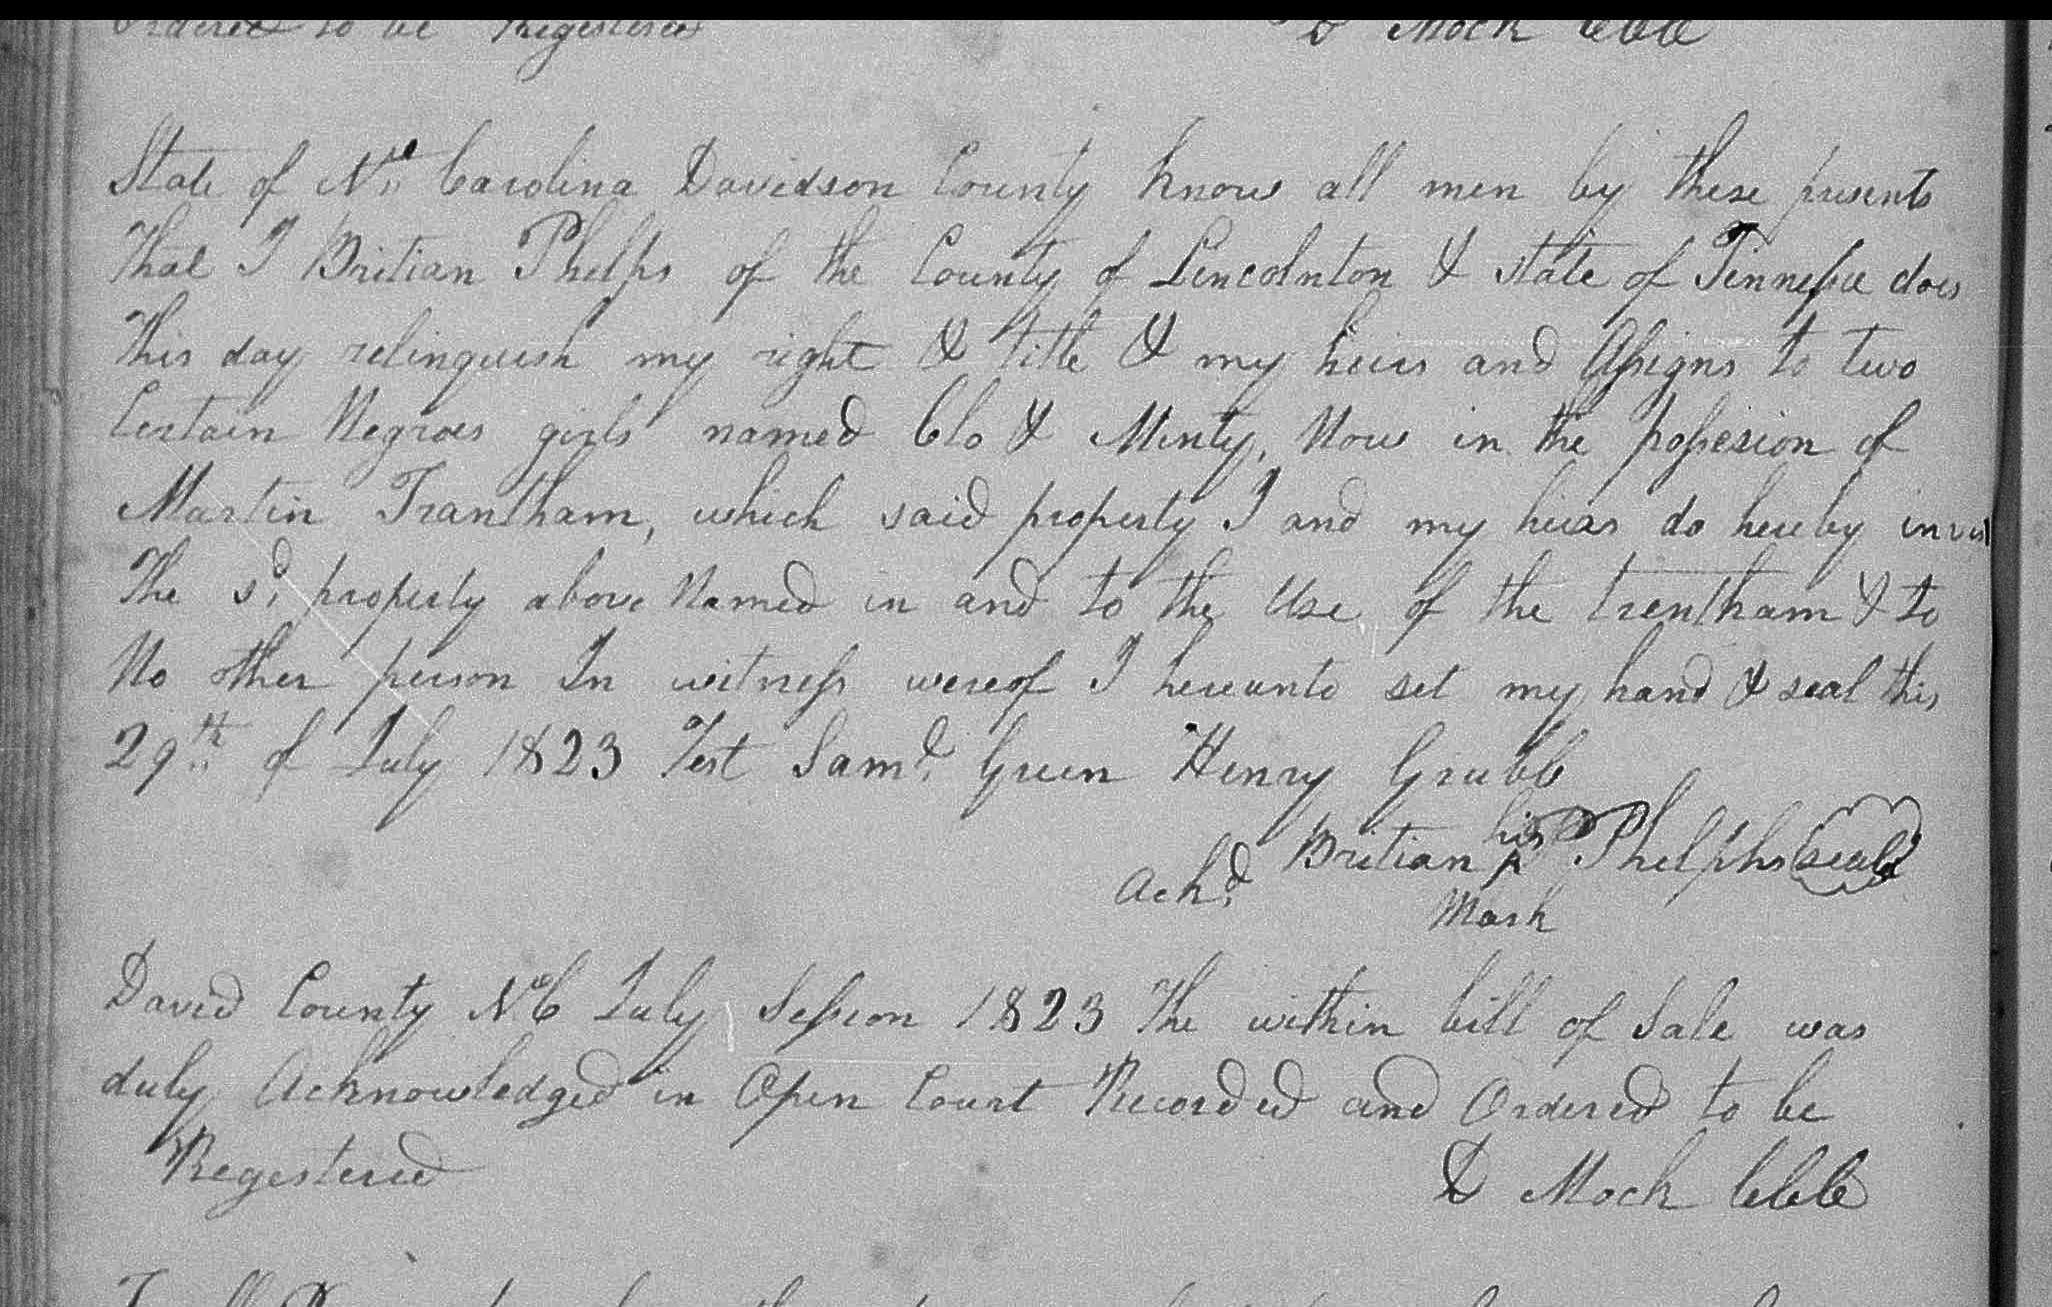 Ordered to be Registered D Mock CCC
State of Nth Carolina Davidson County Know all men by these presents
that I Britian Phelps of the County of Lincolnton & state of Tennessee does
this day relinquish my right & title & my heirs and Assigns to two
Certain Negroes girls named Clo & Minty, Now in the possesion of
Martin Trantham, which said property I and my heirs do hereby invest
the sd. property above Named in and to the Use of the trentham & to
No other person In witness wereof I hereunto set my hand & seal this
29th of July 1823 Test Saml. Green Henry Grubb
his
Britian P Phelphs seald
Ackd.
Mark
David County NoC July Session 1823 The within bill of Sale was
duly Acknowledged in Open Court Recorded and Ordered to be
Registered
D Mock CCC